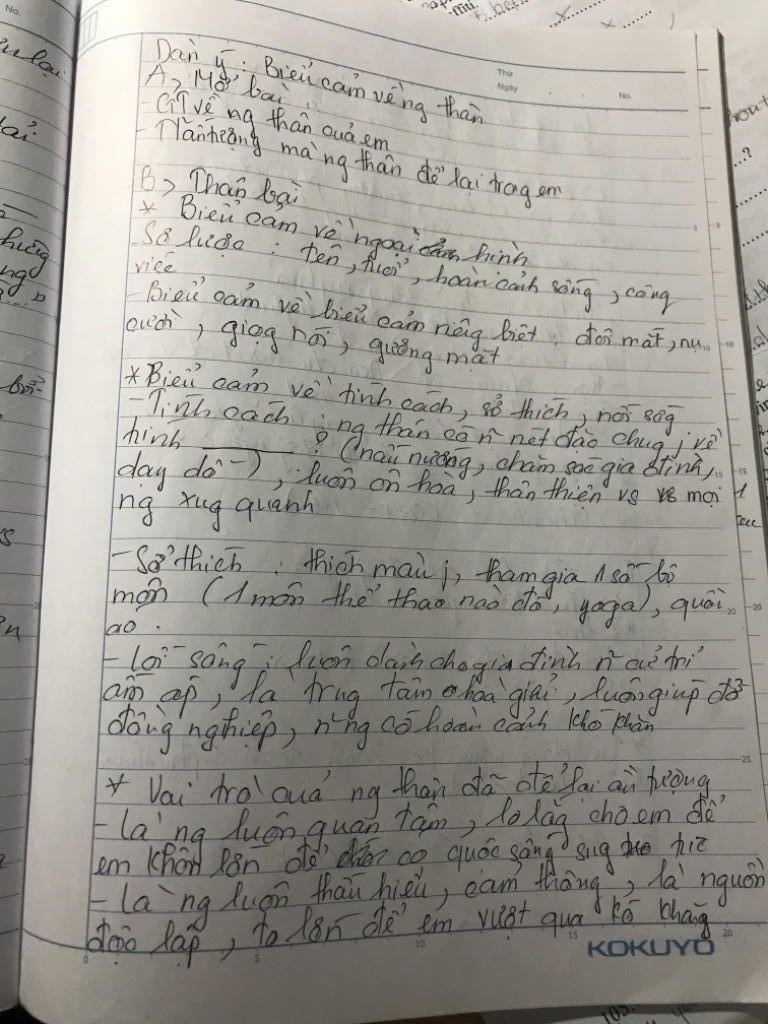 Dàn ý : Biểu cảm về ng thân
A, Mở bài :
- GT về ng thân của em
- Ấn tượng mà ng thân để lại trog em
B, Thân bài
* Biểu cảm về ngoại hình
Sơ lược : tên, tuổi, hoàn cảnh sống, công
việc
- Biểu cảm về biểu cảm riêng biệt : đôi mắt, nụ
cười, giọg nói, gương mặt
* Biểu cảm về tính cách, sở thích, nối sốg
- Tính cách : ng thân có n nét đặc chug j về
hình ? (nấu nướng, chăm sóc gia đình,
dạy dỗ -), luôn ôn hoà, thân thiện vs mọi
ng xug quanh
- Sở thích : thích màu j, tham gia 1 số bộ
môn (1 môn thể thao nào đó, yoga), quần
áo.
- Lối sống : luôn dành cho gia đình n cử chỉ
ấm áp, là trug tâm hoà giải, luôn giúp đỡ
đồng nghiệp, n ng có hoàn cảnh khó khăn
* Vai trò của ng thân đã để lại ấn tượng
- Là ng luôn quan tâm, lo lắg cho em để
em khôn lớn để có cuộc sống sug túc
- Là ng luôn thấu hiểu, cảm thông, là nguồn
độc lập, to lớn để em vượt qua khó khăg
KOKUYO
Thứ
Ngày
No.
No.